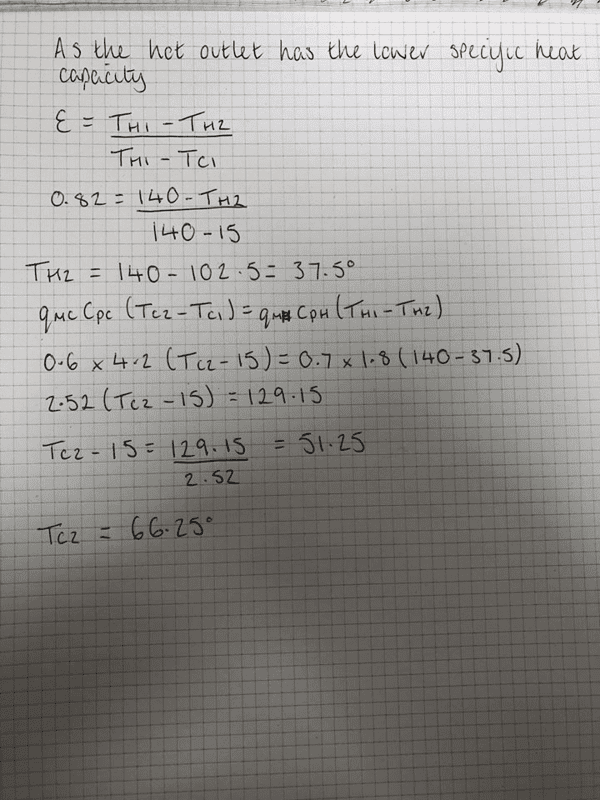 As the hot outlet has the lower specific heat
capacity
ε = TH1 - TH2 / TH1 - TC1
0.82 = 140 - TH2 / 140 - 15
TH2 = 140 - 102.5 = 37.5°
qmc Cpc (Tc2 - Tc1) = qmH CpH (TH1 - TH2)
0.6 x 4.2 (Tc2 - 15) = 0.7 x 1.8 (140 - 37.5)
2.52 (Tc2 - 15) = 129.15
Tc2 - 15 = 129.15 / 2.52 = 51.25
Tc2 = 66.25°